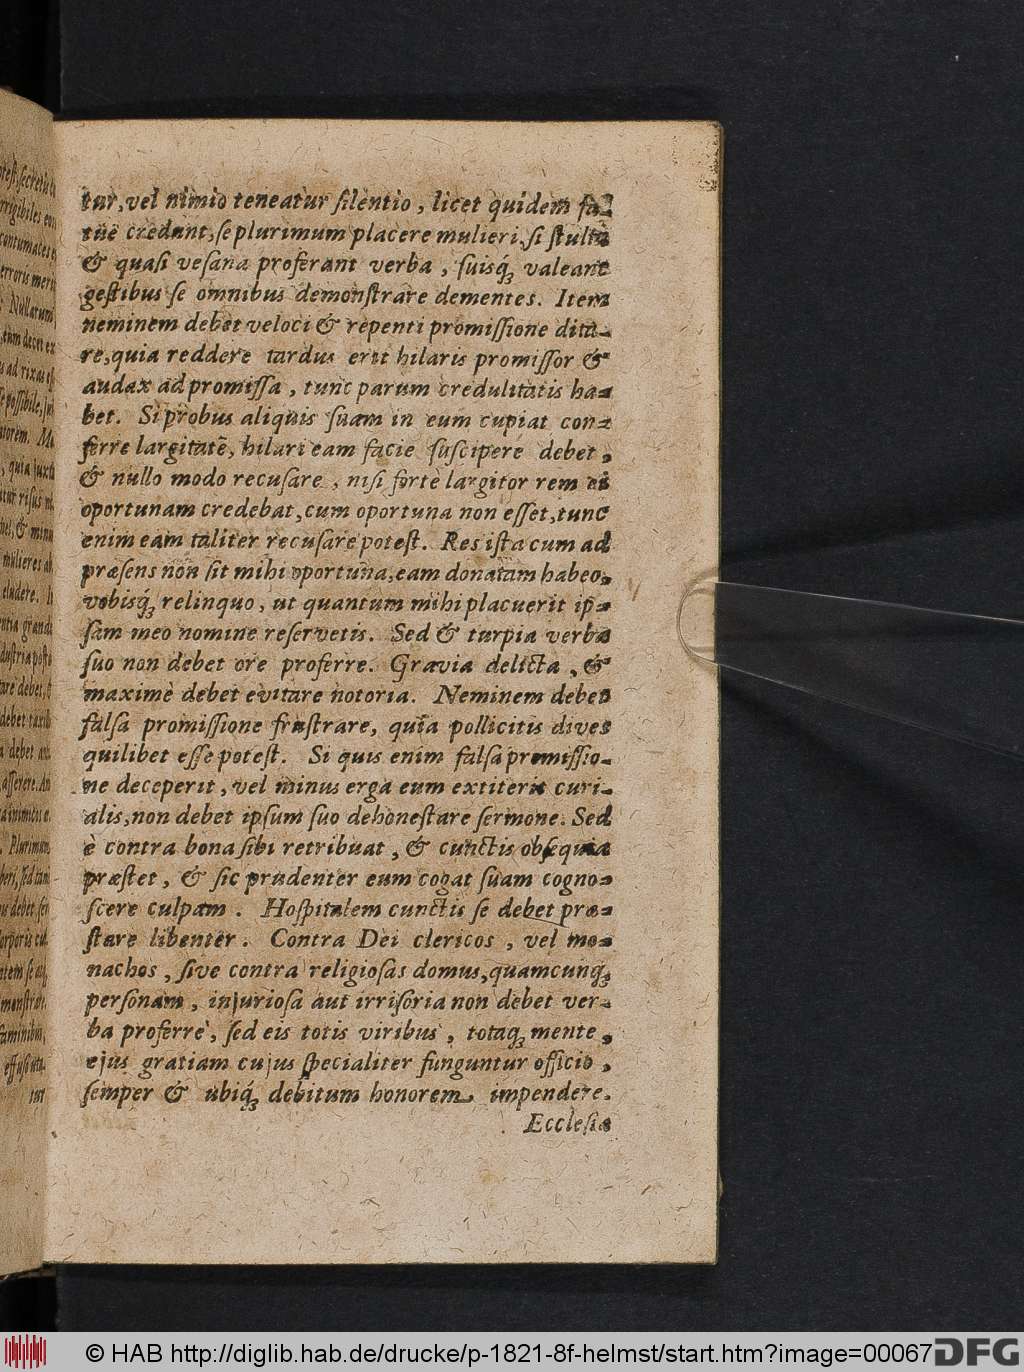 tur, vel nimio teneatur silentio, licet quidem fa-
tuè credant, se plurimum placere mulieri, si stulta
& quasi vesana proferant verba, suisq́; valeant
gestibus se omnibus demonstrare dementes. Item
neminem debet veloci & repenti promissione dita-
re, quia reddere tardus erit hilaris promissor &
audax ad promissa, tunc parum credulitatis ha-
bet. Si probus aliquis suam in eum cupiat con-
ferre largitatē, hilari eam facie suscipere debet,
& nullo modo recusare, nisi fortè largitor rem ei
oportunam credebat, cum oportuna non esset, tunc
enim eam taliter recusare potest. Res ista cum ad
præsens non sit mihi oportuna, eam donatam habeo,
vobisq́; relinquo, ut quantum mihi placuerit ip-
sam meo nomine reservetis. Sed & turpia verba
suo non debet ore proferre. Gravia delicta, &
maximè debet evitare notoria. Neminem debet
falsa promissione frustrare, quia pollicitis dives
quilibet esse potest. Si quis enim falsa promissio-
ne deceperit, vel minus erga eum extiterit curi-
alis, non debet ipsum suo dehonestare sermone. Sed
è contra bona sibi retribuat, & cunctis obsequia
præstet, & sic prudenter eum cogat suam cogno-
scere culpam. Hospitalem cunctis se debet præ-
stare libenter. Contra Dei clericos, vel mo-
nachos, sive contra religiosas domus, quamcunq́;
personam, injuriosa aut irrisoria non debet ver-
ba proferre, sed eis totis viribus, totaq; mente,
ejus gratiam cujus specialiter funguntur officio,
semper & ubiq́; debitum honorem impendere.
Ecclesiæ
© HAB http://diglib.hab.de/drucke/p-1821-8f-helmst/start.htm?image=00067
DFG